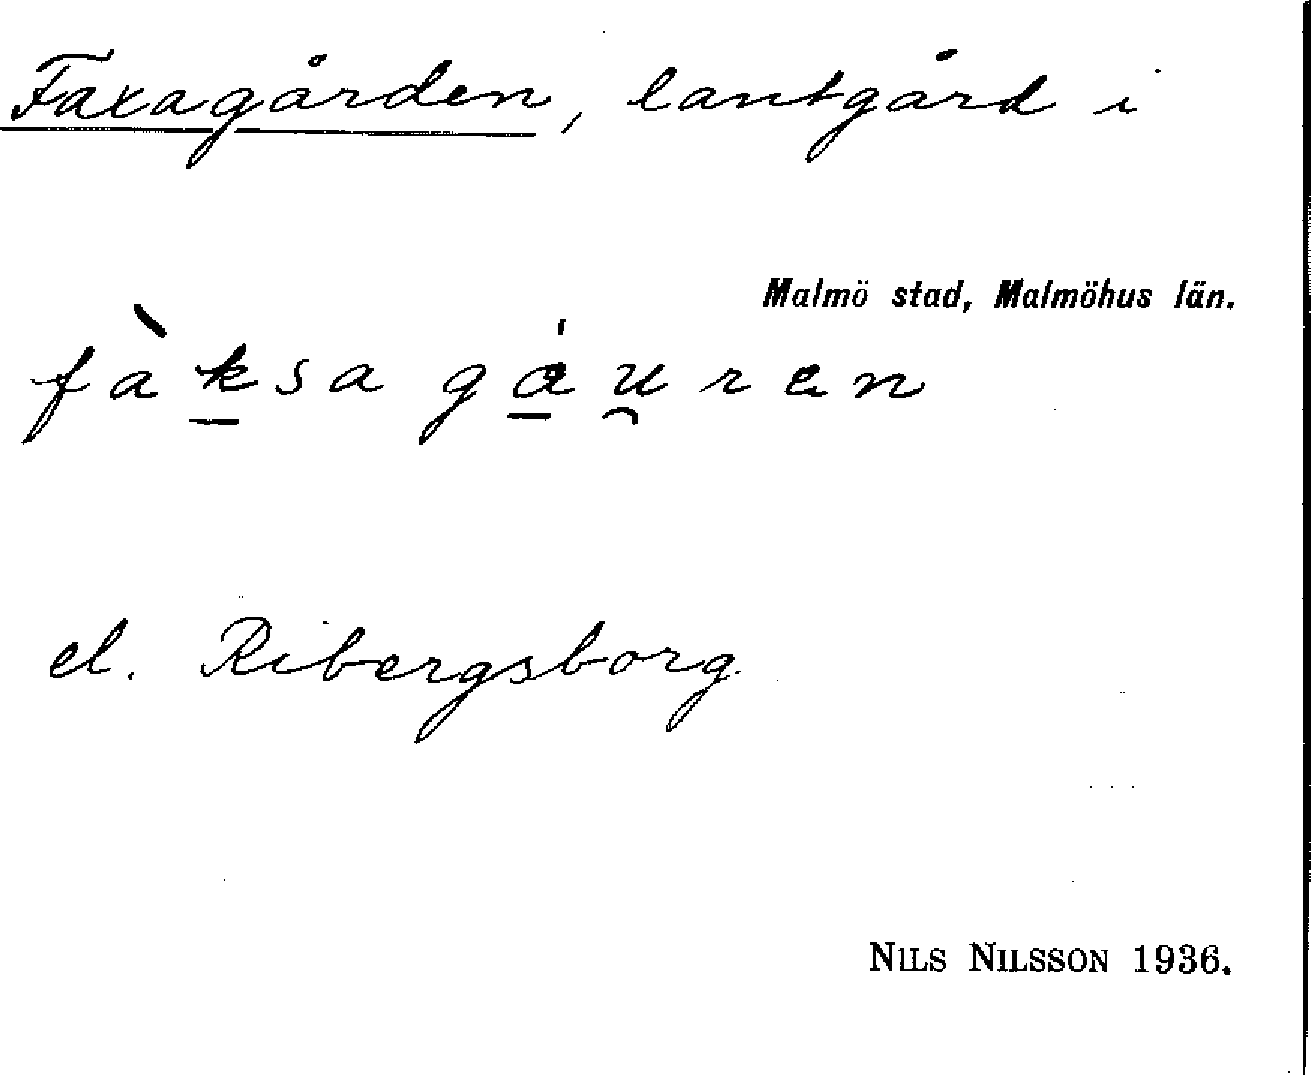 Faxagården, lantgård i
Malmö stad, Malmöhus län.
fàk̲sa gá̲u̯ren
el. Ribergsborg.
NILS NILSSON 1936.